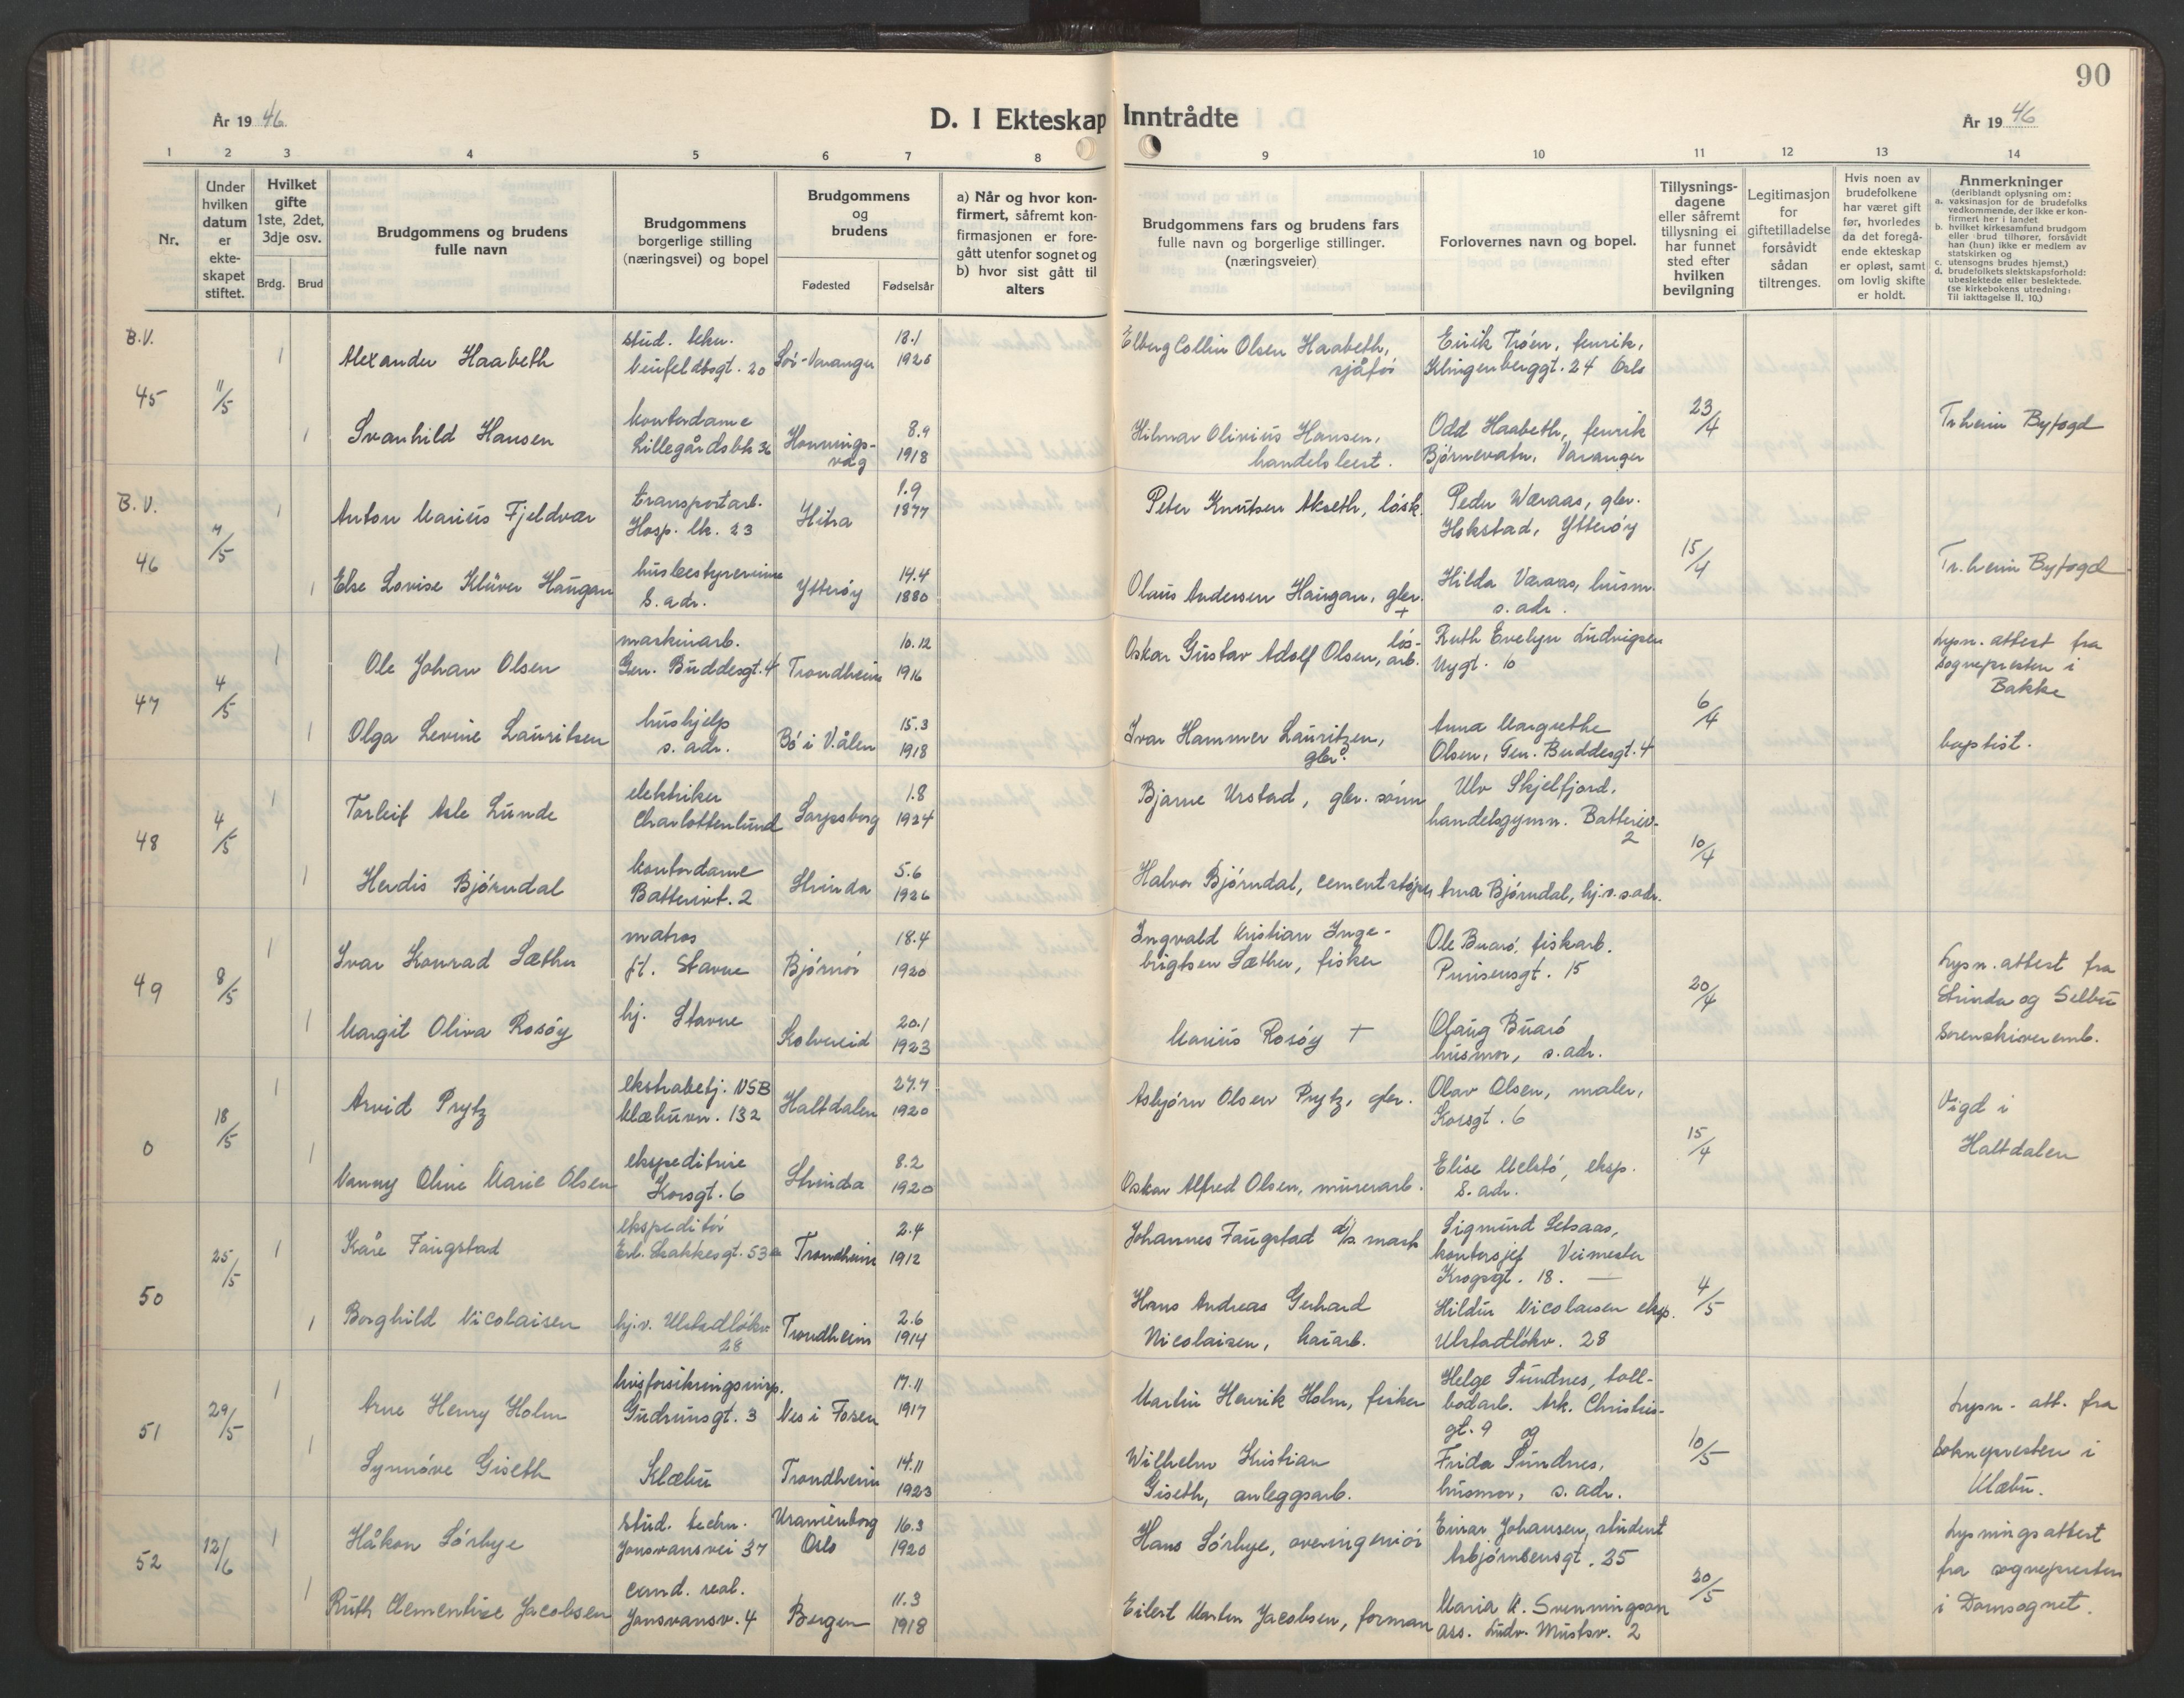 90
År 19 46.
D. I Ekteskap Inntrådte
År 19 46
1 2 3 4 5 6 7 8 9 10 11 12 13 14
Nr.
Under hvilken datum er ekte-skapet stiftet.
Hvilket gifte 1ste, 2det, 3dje osv.
Brdg. Brud
Brudgommens og brudens fulle navn
Brudgommens borgerlige stilling (næringsvei) og bopel
Brudgommens og brudens
Fødested Fødselsår
a) Når og hvor kon-firmert, såfremt kon-firmasjonen er fore-gått utenfor sognet og b) hvor sist gått til alters
Brudgommens fars og brudens fars fulle navn og borgerlige stillinger. (næringsveier)
Forlovernes navn og bopel.
Tillysnings-dagene eller såfremt tillysning ei har funnet sted efter hvilken bevilgning
Legitimasjon for giftetilladelse forsåvidt sådan tiltrenges.
Hvis noen av brudefolkene har været gift før, hvorledes da det foregå-ende ekteskap er opløst, samt om lovlig skifte er holdt.
Anmerkninger
(deriblandt oplysning om:
a. vaksinasjon for de brudefolks vedkommende, der ikke er kon-firmert her i landet
b. hvilket kirkesamfund brudgom eller brud tilhører, forsåvidt han (hun) ikke er medlem av statskirken og
c. utensogns brudes hjemst.)
d. brudefolkets slektskapsforhold: ubeslektede eller beslektede.
(se kirkebokens utredning: Til iakttagelse II. 10.)
B.V.
45 11/5
1 Alexander Haabeth stud. tekn. 20 Sør-Varanger 18.1 1925 Elberg Collin Olsen Haabeth, sjåfør Eirik Tróen, fenrik, Klingenberggt. 24 Oslo
1 Svanhild Hansen kontordame Lillegårdsbk 36 Honnings-våg 8.9 1918 Hilmar Olivius Hansen, handelsbest. Odd Haabeth, fenrik Bjørnevatn, Varanger 23/4 Tr.heim Byfogd
B.V.
46 7/5
1 Anton Marius Fjeldvær transportarb. Hosp. lk. 23 Hitra 1.9 1877 Peter Knutsen Akseth, løsk. Peder Wæraas, gbr. Hokstad, Ytterøy
1 Else Lovise Klüver Haugan husbestyrerinne s. adr. Ytterøy 14.4 1880 Olaus Andersen Haugan, gbr. + Hilda Væraas, husm. s. adr. 15/4 Tr.heim Byfogd
47 4/5
1 Ole Johan Olsen maskinarb. Gen. Buddesgt. 4 Trondheim 10.12 1916 Oskar Gustav Adolf Olsen, løs-arb. Ruth Evelyn Ludvigsen Nygt. 10 Lysn. attest fra sognepresten i Bakke
1 Olga Levine Lauritsen hushjelp s. adr. Bø i V.ålen 15.3 1918 Ivar Hammer Lauritzen, gbr. Anna Margrethe Olsen, Gen. Buddesgt. 4 6/4 baptist.
48 4/5
1 Torleif Asle Lunde elektriker Charlottenlund Sarpsborg 1.8 1924 Bjarne Urstad, gbr. sønn Ulv Skjelfjord, handelsgymn. Batteriv. 2
1 Herdis Bjørndal kontordame Batterivt. 2 Strinda 5.6 1926 Halvor Bjørndal, cementstøper Anna Bjørndal, hj.v. s. adr. 10/4
49 8/5
1 Ivar Konrad Sæther matros ft. Stavne Bjørnør 18.4 1920 Ingvald Kristian Inge-brigtsen Sæther, fisker Ole Buarø, fiskarb. 15 Lysn. attest fra
1 Margit Oliva Rosøy hj. Stavne Kolvereid 20.1 1923 Marius Rosøy + Olaug Buarø husmor, s. adr. 20/4 Strinda og Selbu sorenskriveremb.
0 18/5
1 Arvid Prytz ekstrabetj. NSB Klæbuvn. 132 Haltdalen 27.7 1920 Asbjørn Olsen Prytz, gbr. Olav Olsen, maler, Korsgt. 6 Vigd i Haltdalen
1 Nanny Oline Marie Olsen ekspeditrise Korsgt. 6 Strinda 8.2 1920 Oskar Alfred Olsen, murerarb. Elise Melstø, eksp. s. adr. 15/4
50 25/5
1 Kåre Faugstad ekspeditør Erl. Skakkesgt. 53 Trondheim 2.4 1912 Johannes Faugstad d/s mask Sigmund Setsaas, kontorsjef Veimester Krogsgt. 18. —
1 Borghild Nicolaisen hj.v. Ulstadløkv 28 Trondheim 2.6 1914 Hans Andreas Gerhard Nicolaisen, kaiarb. Hildur Nicolaisen eksp. Ulstadløkv. 28 4/5
51 29/5
1 Arne Henry Holm livsforsikringsinsp. Gudrunsgt. 3 Nes i Fosen 17.11 1917 Martin Henrik Holm, fisker Helge Sundnes, toll-bodarb. Ark. Christies-gt. 9 og Lysn. att. fra
1 Synnøve Giseth Klæbu Trondheim 14.11 1923 Wilhelm Kristian Giseth, anleggsarb. Frida Sundnes, husmor, s. adr. 10/5 soknepresten i Klæbu.
52 12/6
1 Håkon Sørbye stud. techn. Jonsvansvei 37 Uranienborg Oslo 16.3 1920 Hans Sørbye, overingeniør Einar Johansen, student Asbjørnsensgt. 25 Lysningsattest
1 Ruth Clementine Jacobsen cand. real. Jonsvansv. 4 Bergen 11.3 1918 Eilert Martin Jacobsen, forman Maria K. Svenningson ass. Ludv. Mustsv. 2 20/5 fra sognepresten i Domsognet.